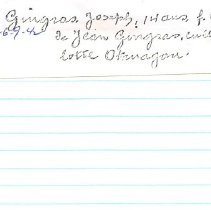 Gingras, Joseph, 14 ans f.
6-9-4
de Jean Gingras, cult
Okanagan.